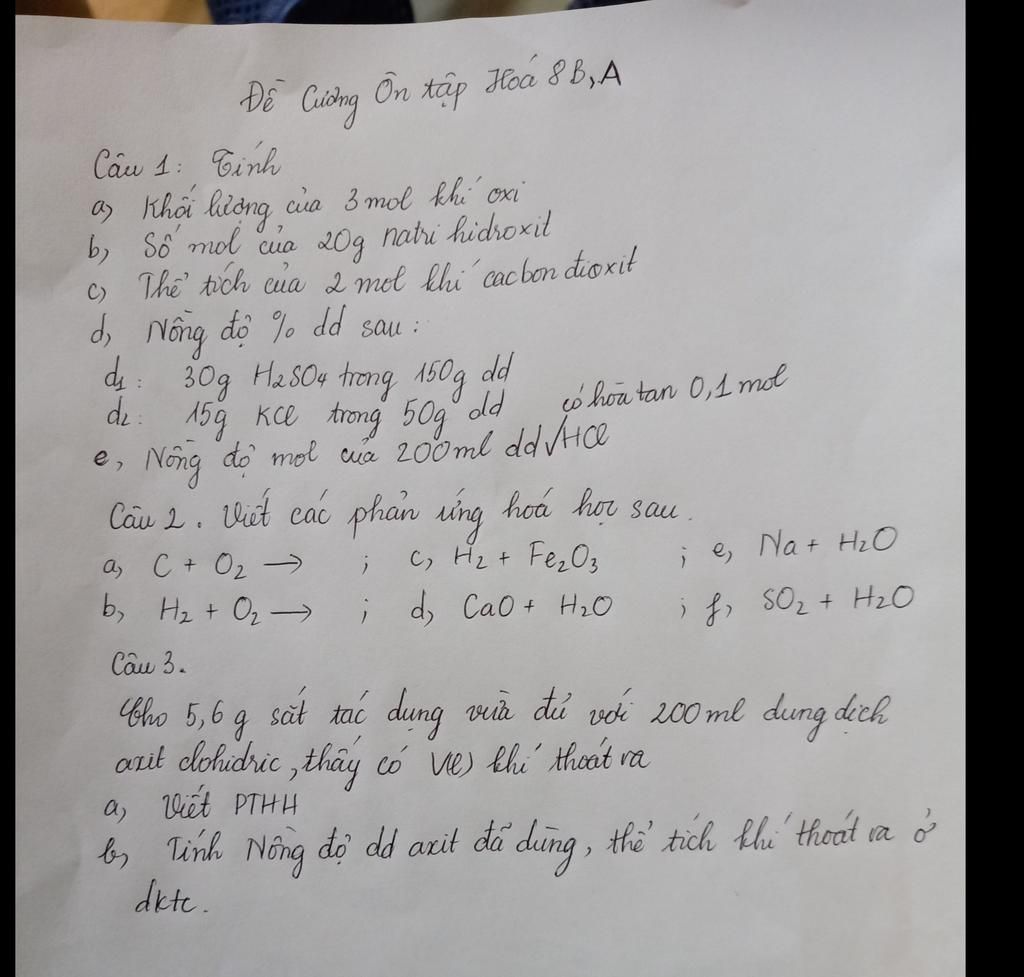 Đề Cương Ôn tập Hoá 8B,A
Câu 1: Tính
a, Khối lượng của 3 mol khí oxi
b, Số mol của 20g natri hidroxit
c, Thể tích của 2 mol khí cacbon đioxit
d, Nồng độ % dd sau:
d1: 30g H2SO4 trong 150g dd
d2: 15g KCl trong 50g dd
có hòa tan 0,1 mol
e, Nồng độ mol của 200ml dd√HCl
Câu 2. Viết các phản ứng hoá học sau.
a, C + O2 → ; c, H2 + Fe2O3 ; e, Na + H2O
b, H2 + O2 → ; d, CaO + H2O ; f, SO2 + H2O
Câu 3.
Cho 5,6 g sắt tác dụng vừa đủ với 200 ml dung dịch
axit clohidric, thấy có V(l) khí thoát ra
a, Viết PTHH
b, Tính Nồng độ dd axit đã dùng, thể tích khí thoát ra ở
dktc.